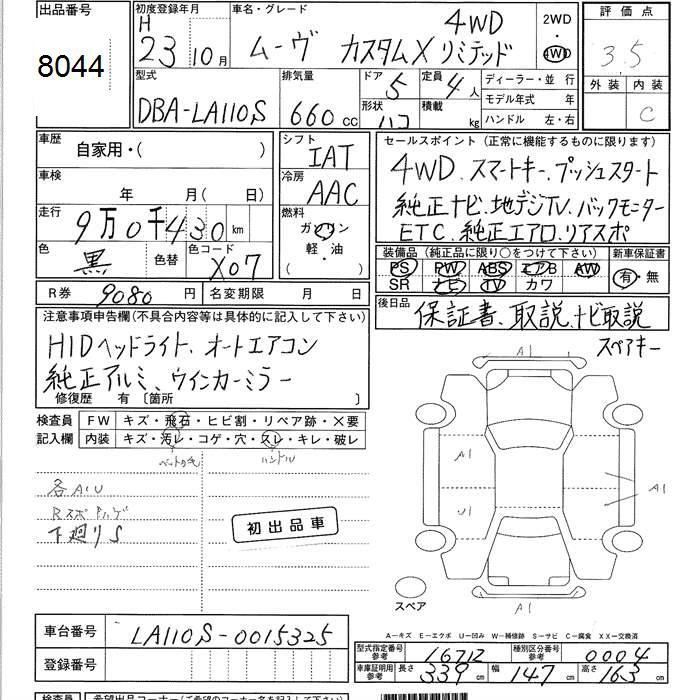 出品番号
8044
初度登録年月
H 23 10月
車名・グレード
ムーヴ カスタムX リミテッド 4WD
2WD
・
4WD
評価点
3.5
外装 内装
C
型式
DBA-LA110S
排気量
660 cc
ドア 5
定員 4人
形状 ハコ
積載 kg
ディーラー・並行
モデル年式 年
ハンドル 左・右
車歴
自家用・( )
シフト
IAT
車検
年 月( 日)
冷房
AAC
走行
9万0千430 km
燃料
ガソリン
軽・油
( )
色
黒
色替
色コード
X07
セールスポイント(正常に機能するものに限ります)
4WD、スマートキー、プッシュスタート
純正ナビ、地デジTV、バックモニター
ETC、純正エアロ、リアスポ
装備品(純正品に限り○をつけて下さい)
新車保証書
PS PW ABS エアB AW
SR ナビ TV カワ
有・無
R券 9080 円
名変期限 月 日
後日品
保証書、取説、ナビ取説
スペアキー
注意事項申告欄(不具合内容等は具体的に記入して下さい)
HIDヘッドライト、オートエアコン
純正アルミ、ウインカーミラー
修復歴 有〔箇所 〕
検査員
記入欄
FW キズ・飛石・ヒビ割・リペア跡・X要
内装 キズ・汚レ・コゲ・穴・スレ・キレ・破レ
ハンドル
各AU
下廻りS
初出品車
A1
A1
U1
A1
A1
スペア
A-キズ E-エクボ U-凹み W-補修跡 S-サビ C-腐食 XX-交換済
車台番号
LA110S-0015325
登録番号
型式指定番号
参考
16712
種別区分番号
参考
0004
車庫証明用
参考
長さ 339 cm
幅 147 cm
高さ 163 cm
検査員
希望出品コーナー(ご希望のコーナー名を記入して下さい)